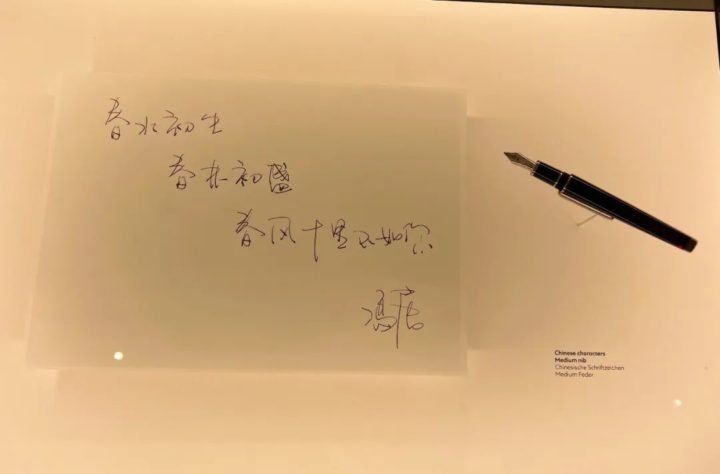 春水初生
春林初盛
春风十里不如你
冯唐
Chinese characters
Medium nib
Chinesische Schriftzeichen
Medium Feder